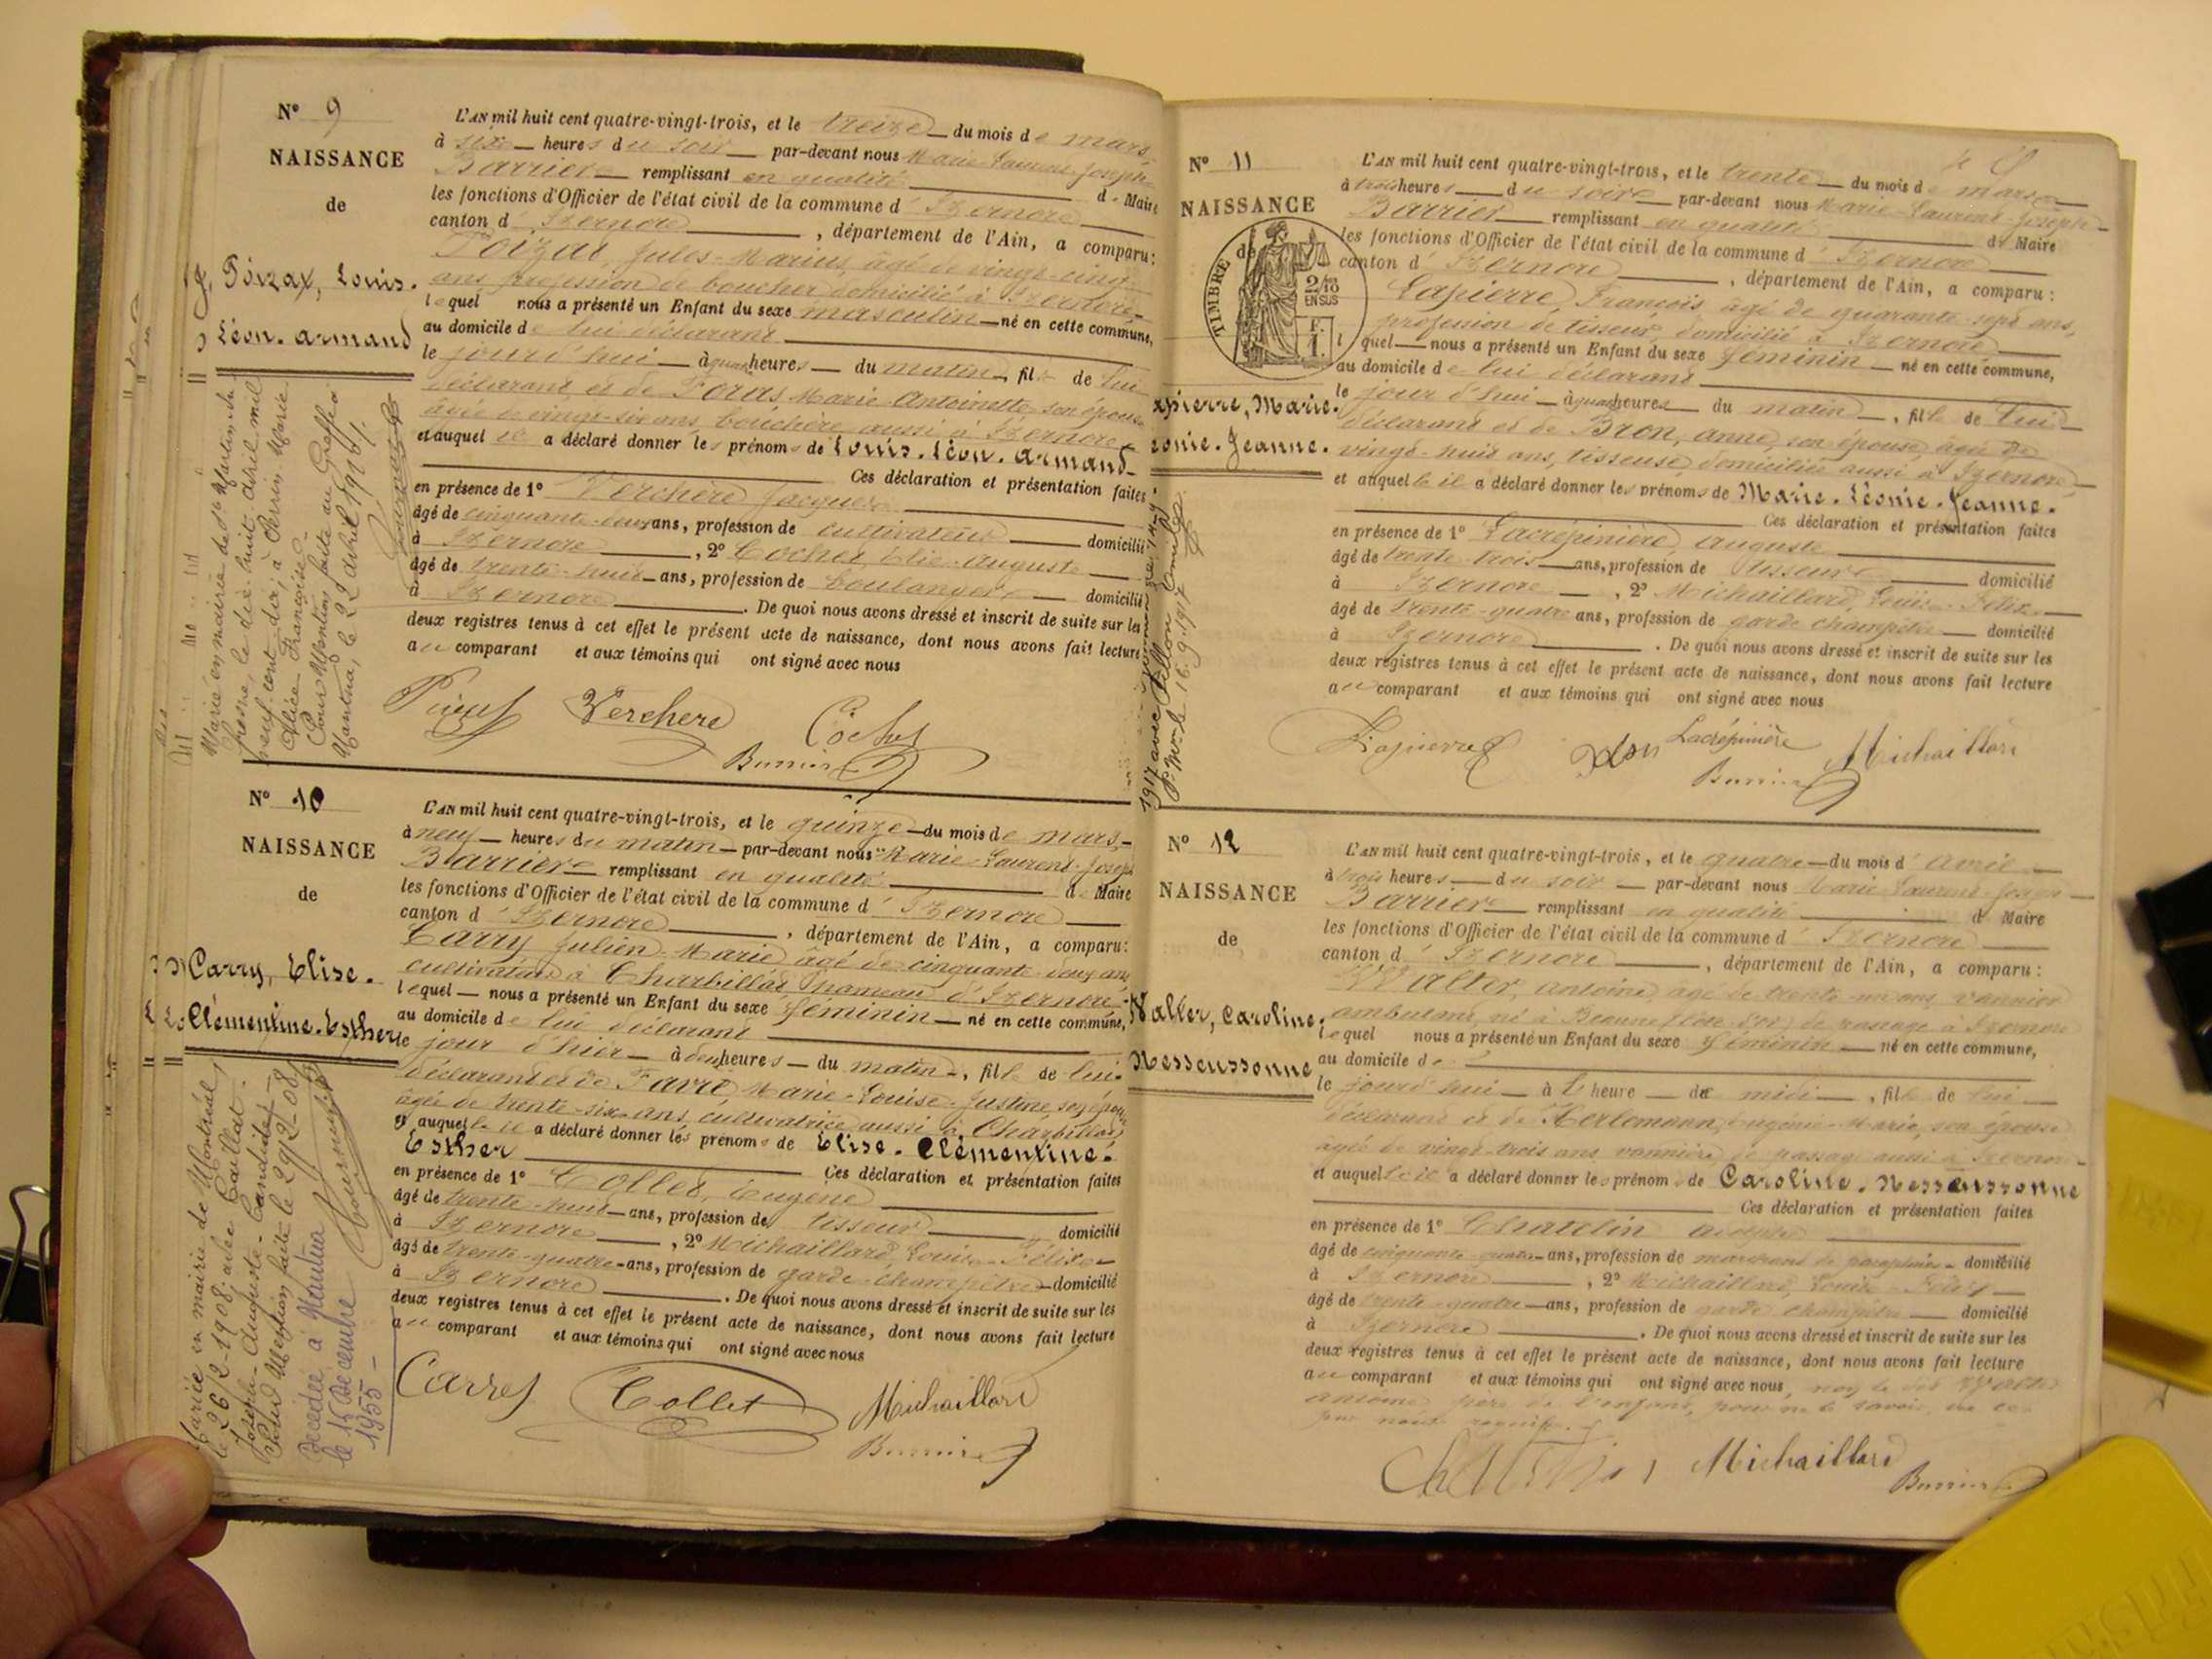 N° 9
NAISSANCE
de
Poizat, Louis.
Léon. Armand
Marié en mairie de St Martin du
fresne, le dix-huit avril mil
neuf cent dix, à Perrin Marie
Alice Françoise.
Pour Mention faite au Greffe
Nantua, le 22 avril 1910
L'AN mil huit cent quatre-vingt-trois, et le treize du mois de mars
à six heures du soir par-devant nous Marie-Laurent-Joseph
Barrier remplissant en qualité de Maire
les fonctions d'Officier de l'état civil de la commune d'Izernore
canton d'Izernore, département de l'Ain, a comparu:
Poizat, Jules-Marius, âgé de vingt-cinq
ans profession de boucher domicilié à Izernore
lequel nous a présenté un Enfant du sexe masculin né en cette commune,
au domicile de lui déclarant
le jourd'hui à quatre heures du matin, fils de lui
déclarant et de Foras Marie Antoinette son épouse
âgée de vingt-six ans bouchère aussi à Izernore
et auquel il a déclaré donner les prénoms de Louis. Léon. Armand
Ces déclaration et présentation faites
en présence de 1° Verchère Jacques
âgé de cinquante-deux ans, profession de cultivateur domicilié
à Izernore, 2° Cochet, Elie-Auguste
âgé de trente-huit ans, profession de boulanger domicilié
à Izernore. De quoi nous avons dressé et inscrit de suite sur les
deux registres tenus à cet effet le présent acte de naissance, dont nous avons fait lecture
au comparant et aux témoins qui ont signé avec nous
Poizat Verchere Cochet
Barrier
N° 10
NAISSANCE
de
Carry, Elise.
Clémentine. Esther
Mariée en mairie de Montréal
le 26/2-1908 avec Caillat
Joseph-Auguste-Candide
Pour Mention faite le 29/2-08
Décédée à Nantua
le 15 Décembre
1955
L'AN mil huit cent quatre-vingt-trois, et le quinze du mois de mars
à neuf heures du matin par-devant nous Marie-Laurent-Joseph
Barrier remplissant en qualité de Maire
les fonctions d'Officier de l'état civil de la commune d'Izernore
canton d'Izernore, département de l'Ain, a comparu:
Carry Julien-Marie âgé de cinquante-deux ans
cultivateur à Charbillat hameau d'Izernore
lequel nous a présenté un Enfant du sexe féminin né en cette commune,
au domicile de lui déclarant
le jour d'hier à deux heures du matin, fille de lui
déclarant et de Favre Marie-Louise-Justine son épouse
âgée de trente-six ans cultivatrice aussi à Charbillat
et auquelle il a déclaré donner les prénoms de Elise. Clémentine.
Esther
Ces déclaration et présentation faites
en présence de 1° Collet, Eugène
âgé de trente-huit ans, profession de tisseur domicilié
à Izernore, 2° Michaillard, Louis-Félix
âgé de trente-quatre ans, profession de garde-champêtre domicilié
à Izernore. De quoi nous avons dressé et inscrit de suite sur les
deux registres tenus à cet effet le présent acte de naissance, dont nous avons fait lecture
au comparant et aux témoins qui ont signé avec nous
Carry Collet Michaillard
Barrier
N° 11
NAISSANCE
de
TIMBRE
2/10
EN SUS
F.
1.
apierre, Marie.
éonie. Jeanne.
1917 avec
L'AN mil huit cent quatre-vingt-trois, et le trente du mois de mars
à trois heures du soir par-devant nous Marie-Laurent-Joseph
Barrier remplissant en qualité de Maire
les fonctions d'Officier de l'état civil de la commune d'Izernore
canton d'Izernore, département de l'Ain, a comparu:
Lapierre, François, âgé de quarante-sept ans,
profession de tisseur, domicilié à Izernore
lequel nous a présenté un Enfant du sexe féminin né en cette commune,
au domicile de lui déclarant
le jour d'hui à quatre heures du matin, fille de lui
déclarant et de Bron, Anne, son épouse, âgée de
vingt-huit ans, tisseuse domiciliée aussi à Izernore
et auquelle il a déclaré donner les prénoms de Marie. Léonie. Jeanne.
Ces déclaration et présentation faites
en présence de 1° Lacrépinière, Auguste
âgé de trente-trois ans, profession de tisseur domicilié
à Izernore, 2° Michaillard, Louis-Félix
âgé de trente-quatre ans, profession de garde champêtre domicilié
à Izernore. De quoi nous avons dressé et inscrit de suite sur les
deux registres tenus à cet effet le présent acte de naissance, dont nous avons fait lecture
au comparant et aux témoins qui ont signé avec nous
Lapierre Lacrépinière Michaillard
Barrier
N° 12
NAISSANCE
de
Walter, Caroline.
Nessenssonne
L'AN mil huit cent quatre-vingt-trois, et le quatre du mois d'avril
à trois heures du soir par-devant nous Marie-Laurent-Joseph
Barrier remplissant en qualité de Maire
les fonctions d'Officier de l'état civil de la commune d'Izernore
canton d'Izernore, département de l'Ain, a comparu:
Walter, Antoine, âgé de trente-un ans, vannier
ambulant, né à Beaune (Côte d'Or) de passage à Izernore
lequel nous a présenté un Enfant du sexe féminin né en cette commune,
au domicile de
le jourd'hui à l'heure de midi, fille de lui
déclarant et de Herlemann, Eugénie-Marie, son épouse
âgée de vingt-trois ans vannière de passage aussi à Izernore
et auquelle il a déclaré donner les prénoms de Caroline. Nessenssonne
Ces déclaration et présentation faites
en présence de 1° Chatelin
âgé de cinquante-quatre ans, profession de marchand de parapluies domicilié
à Izernore, 2° Michaillard, Louis-Félix
âgé de trente-quatre ans, profession de garde champêtre domicilié
à Izernore. De quoi nous avons dressé et inscrit de suite sur les
deux registres tenus à cet effet le présent acte de naissance, dont nous avons fait lecture
au comparant et aux témoins qui ont signé avec nous, non le dit Walter
Antoine père de l'enfant, pour ne le savoir, de ce
par nous requis
Michaillard
Barrier